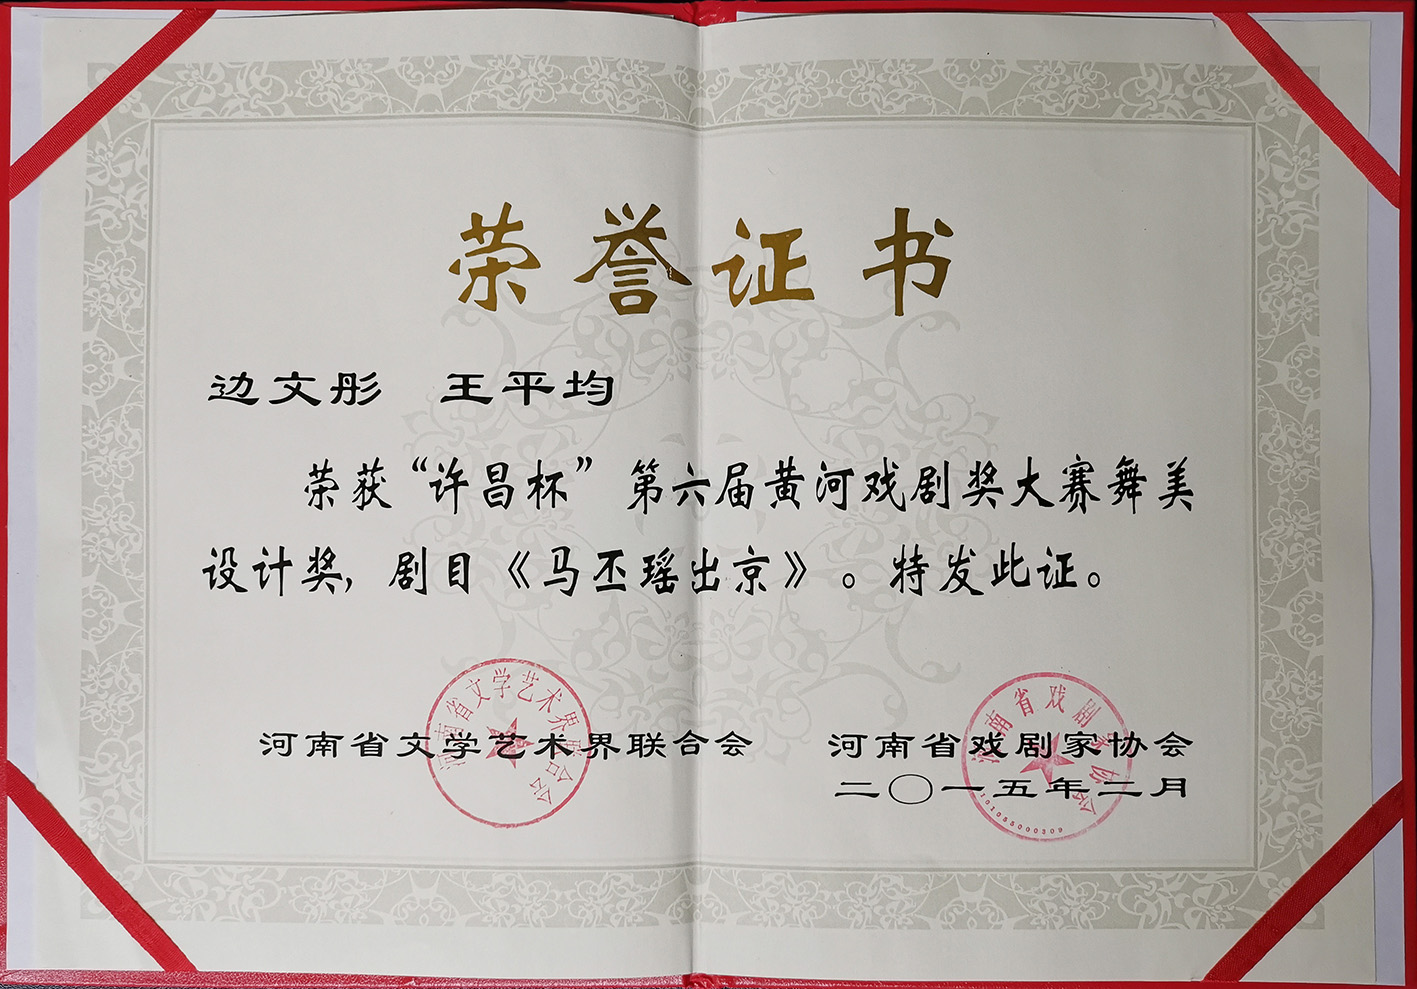 荣誉证书
边文彤 王平均
荣获“许昌杯”第六届黄河戏剧奖大赛舞美
设计奖，剧目《马丕瑶出京》。特发此证。
河南省文学艺术界联合会
河南省戏剧家协会
二〇一五年二月
河南省文学艺术界联合会
河南省戏剧家协会